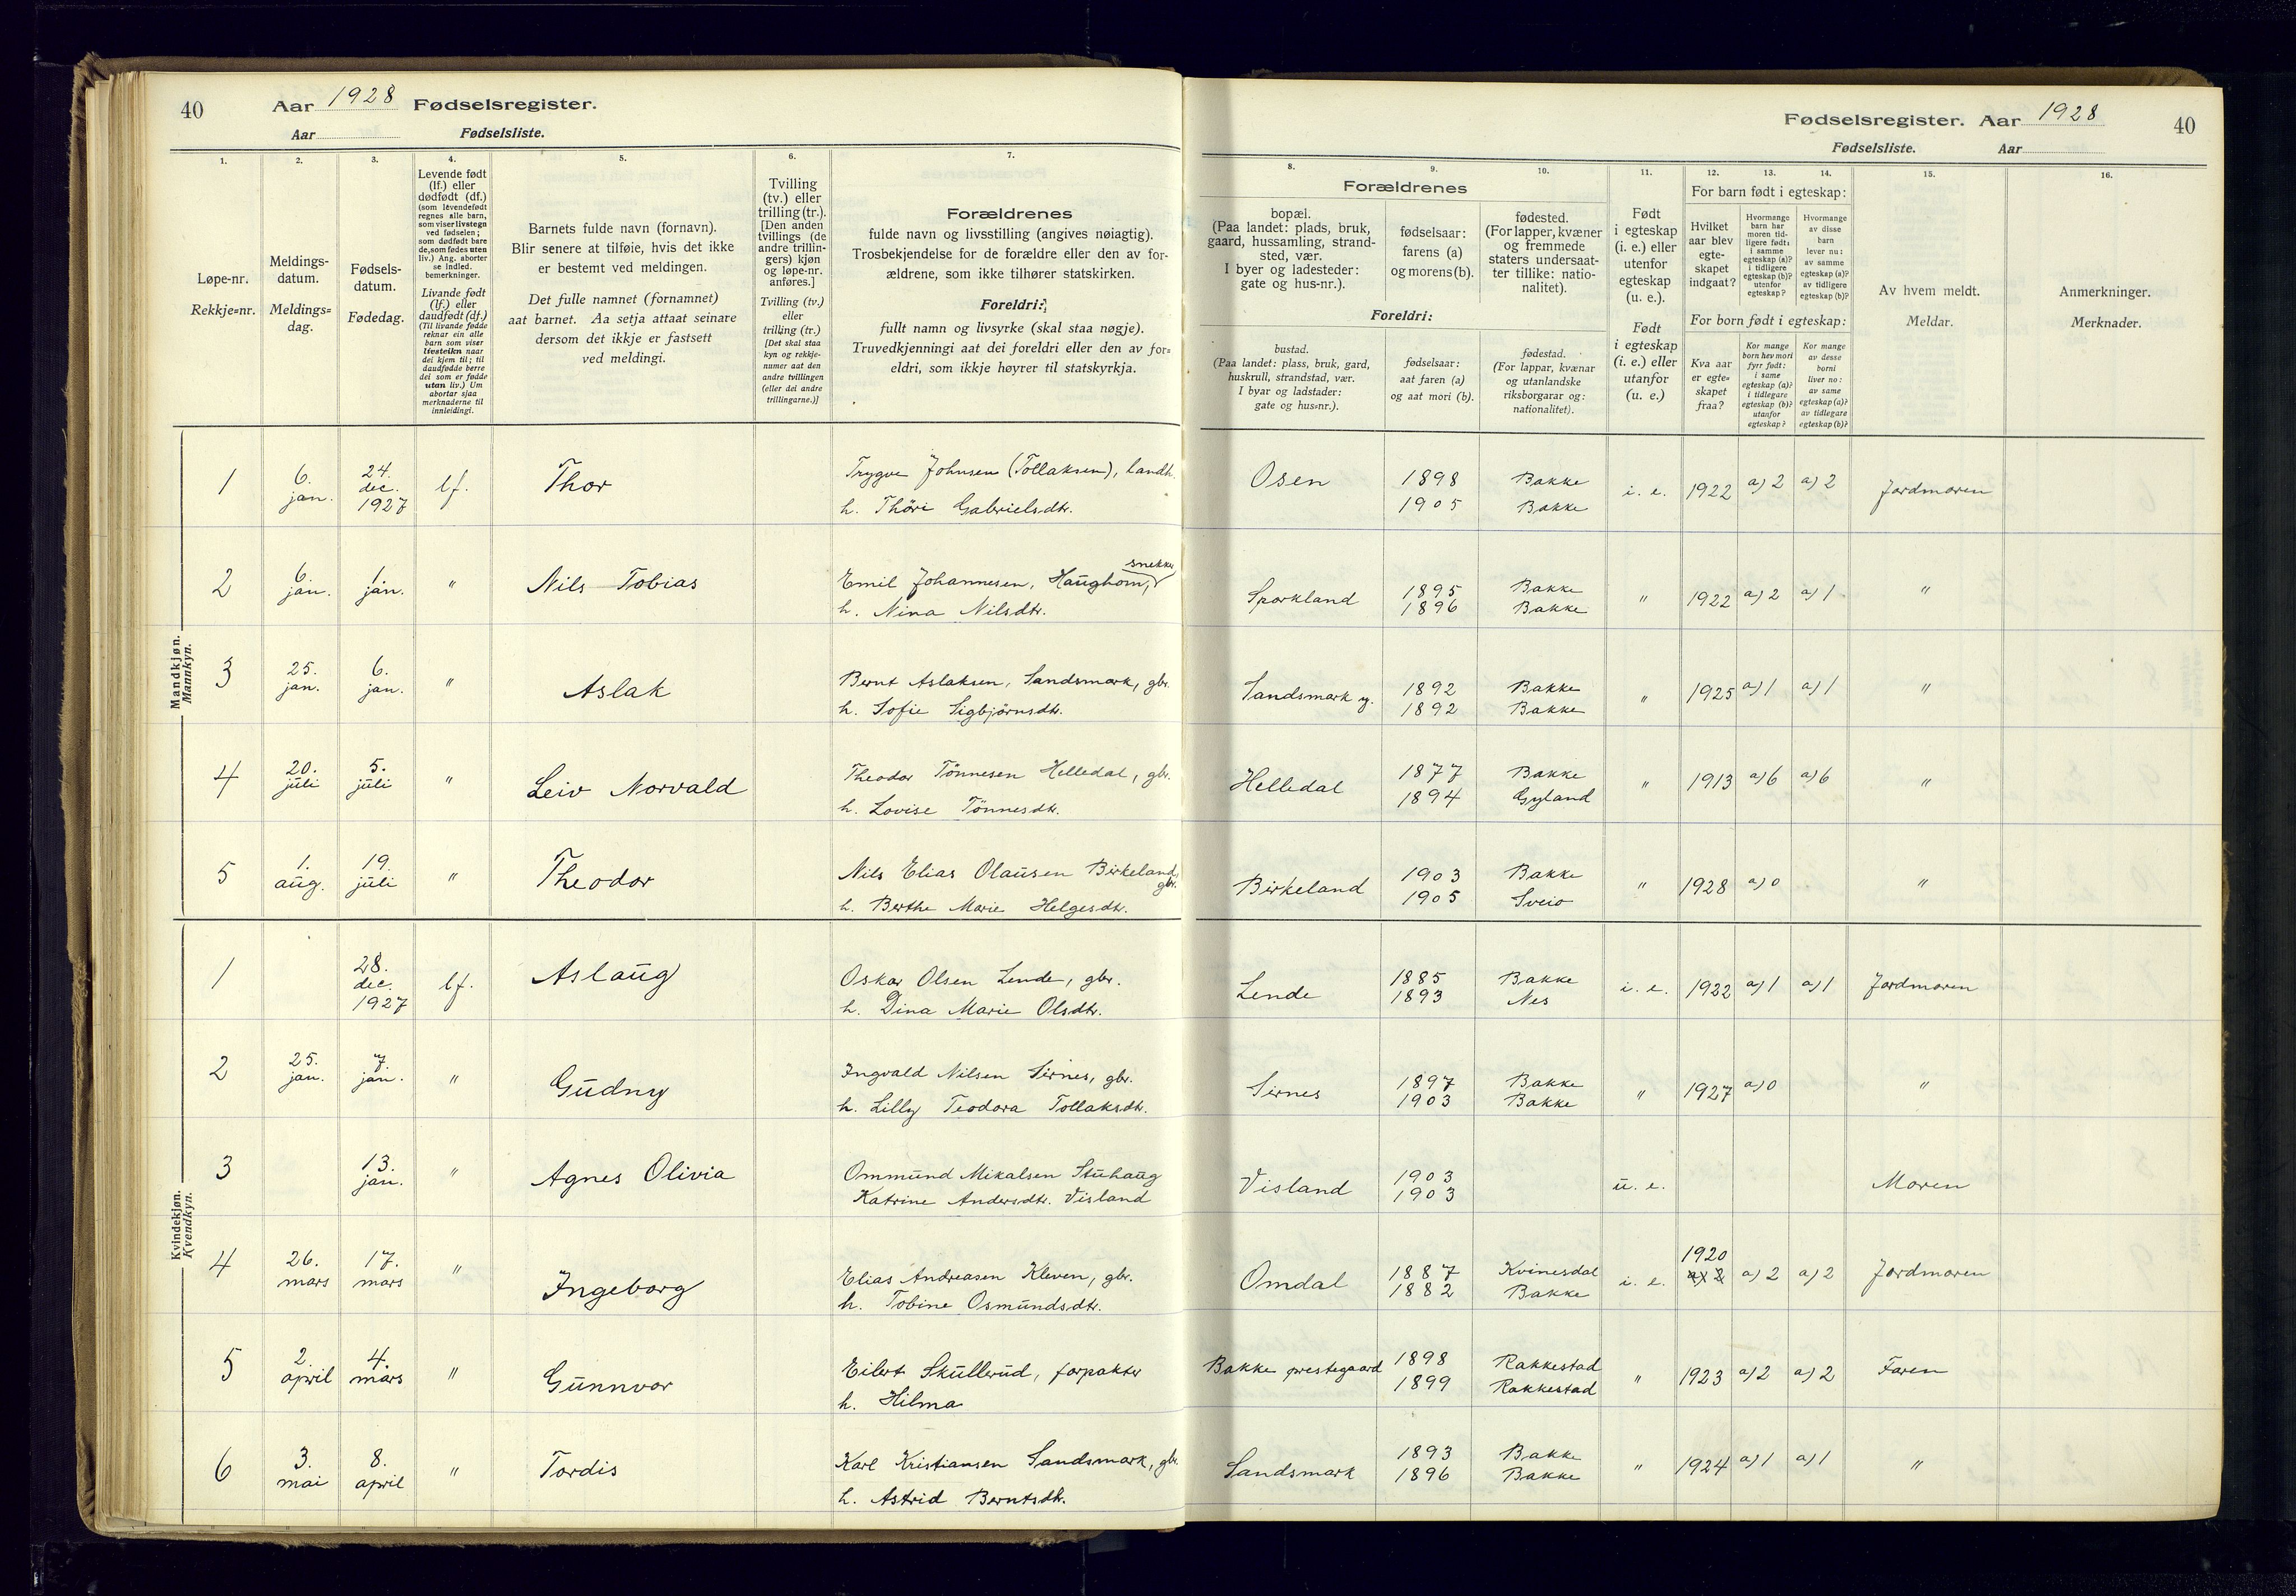 40
Aar 1928 Fødselsregister.
Aar Fødselsliste.
1.
2.
3.
4.
5.
6.
7.
Løpe-nr.
Rekkje=nr.
Meldings-
datum.
Meldings=
dag.
Fødsels-
datum.
Fødedag.
Levende født
(lf.) eller
dødfødt (df.)
(som levendefødt
regnes alle barn,
som viser livstegn
ved fødselen;
som dødfødt bare
de, som fødes uten
liv.) Ang. aborter
se indled.
bemerkninger.
Livande født
(lf.) eller
daudfødt (df.)
(Til livande fødde
reknar ein alle
barn som viser
livsteikn naar
dei kjem til; til
daudfødde berre
dei som er fødde
utan liv.) Um
abortar sjaa
merknaderne til
innleidingi.
Barnets fulde navn (fornavn).
Blir senere at tilføie, hvis det ikke
er bestemt ved meldingen.
Det fulle namnet (fornamnet)
aat barnet. Aa setja attaat seinare
dersom det ikkje er fastsett
ved meldingi.
Tvilling
(tv.) eller
trilling (tr.).
[Den anden
tvillings (de
andre trillin-
gers) kjøn
og løpe-nr.
anføres.]
Tvilling (tv.)
eller
trilling (tr.)
[Det skal staa
kyn og rekkje-
numer aat den
andre tvillingen
(eller dei andre
trillingarne.)]
Forældrenes
fulde navn og livsstilling (angives nøiagtig).
Trosbekjendelse for de forældre eller den av for-
ældrene, som ikke tilhører statskirken.
Foreldri:
fullt namn og livsyrke (skal staa nøgje).
Truvedkjenningi aat dei foreldri eller den av for=
eldri, som ikkje høyrer til statskyrkja.
Mandkjøn.
Mannkyn.
1 6. jan. 24. dec. 1927 lf. Thor
Trygve Johnsen (Tollaksen), landh.
h. Thöri Gabrielsdtr.
2 6. jan. 1. jan. " Nils Tobias
snekker
Emil Johannesen, Haughom,
h. Nina Nilsdtr.
3 25. jan. 6. jan. " Aslak
Bernt Aslaksen, Sandsmark, gbr.
h. Sofie Sigbjörnsdtr.
4 20. juli 5. juli " Leiv Norvald
Theodor Tönnesen Helledal, gbr.
h. Lovise Tönnesdtr.
5 1. aug. 19. juli " Theodor
Nils Elias Olausen Birkeland,
gbr.
h. Berthe Marie Helgesdtr.
Kvindekjøn.
Kvendkyn.
1 28. dec. 1927 lf. Aslaug
Oskar Olsen Lende, gbr.
h. Dina Marie Olsdtr.
2 25. jan. 7. jan. " Gudny
Ingvald Nilsen Sirnes, gbr.
h. Lilly Teodora Tollaksdtr.
3 13. jan. " Agnes Olivia
Ommund Mikalsen Stuhaug
Katrine Andersdtr. Visland
4 26. mars 17. mars " Ingeborg
Elias Andreasen Kleven, gbr.
h. Tobine Osmundsdtr.
5 2. april 4. mars " Gunnvor
Eilert Skullerud, forpakter
h. Hilma
6 3. mai 8. april " Tordis
Karl Kristiansen Sandsmark, gbr.
h. Astrid Berntsdtr.
Fødselsregister. Aar 1928 40
Fødselsliste. Aar
8.
9.
10.
11.
12.
13.
14.
15.
16.
Forældrenes
bopæl.
(Paa landet: plads, bruk,
gaard, hussamling, strand-
sted, vær.
I byer og ladesteder:
gate og hus-nr.).
fødselsaar:
farens (a)
og morens (b).
fødested.
(For lapper, kvæner
og fremmede
staters undersaat-
ter tillike: natio-
nalitet).
Foreldri:
bustad.
(Paa landet: plass, bruk, gard,
huskrull, strandstad, vær.
I byar og ladstader:
gate og hus=nr.).
fødselsaar:
aat faren (a)
og aat mori (b).
fødestad.
(For lappar, kvænar
og utanlandske
riksborgarar og:
nationalitet).
Født
i egteskap
(i. e.) eller
utenfor
egteskap
(u. e.).
Født
i egteskap
(i. e.) eller
utanfor
(u. e.)
For barn født i egteskap:
Hvilket
aar blev
egte-
skapet
indgaat?
Hvormange
barn har
moren tid-
ligere født:
i samme
egteskap (a)?
i tidligere
egteskap (b)?
utenfor
egteskap?
Hvormange
av disse
barn
lever nu:
av samme
egteskap (a)?
av tidligere
egteskap (b)?
For born født i egteskap:
Kva aar
er egte=
skapet
fraa?
Kor mange
born hev mori
fyrr født:
i same
egteskap (a)?
i tidlegare
egteskap (b)?
utanfor
egteskap?
Kor mange
av desse
borni
liver no:
av same
egteskap (a)?
av tidlegare
egteskap (b)?
Av hvem meldt.
Meldar.
Anmerkninger.
Merknader.
Osen 1898 Bakke i. e. 1922 a) 2 a) 2 Jordmoren
1905 Bakke
Sporkland 1895 Bakke " 1922 a) 2 a) 1 "
1896 Bakke
Sandsmark y. 1892 Bakke " 1925 a) 1 a) 1 "
1892 Bakke
Helledal 1877 Bakke " 1913 a) 6 a) 6 "
1894 Gyland
Birkeland 1903 Bakke " 1928 a) 0 "
1905 Sveio
Lende 1885 Bakke i. e. 1922 a) 1 a) 1 Jordmoren
1893 Nes
Sirnes 1897 Bakke " 1927 a) 0 "
1903 Bakke
Visland 1903 u. e. Moren
1903
1920
Omdal 1887 Kvinesdal i. e. a) 2 a) 2 a) 2 Jordmoren
1882 Bakke
Bakke prestegaard 1898 Rakkestad " 1923 a) 2 a) 2 Faren
1899 Rakkestad
Sandsmark 1893 Bakke " 1924 a) 1 a) 1 "
1896 Bakke